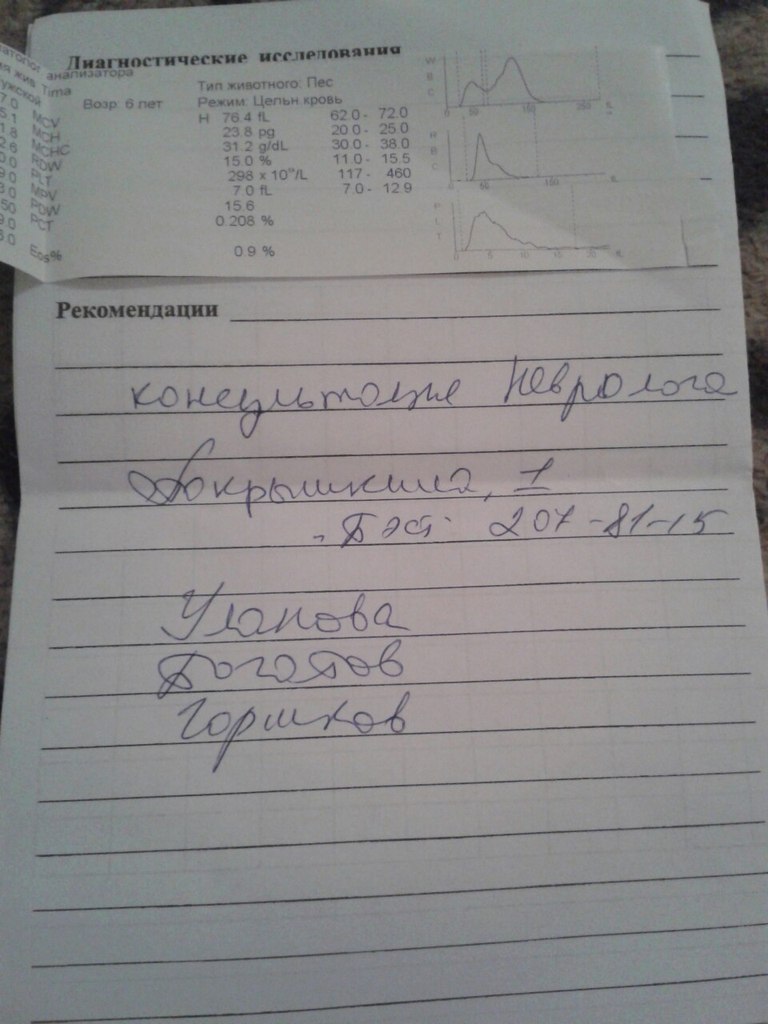 Диагностические исследования
анализатора
Tima Тип животного: Пес
Возр: 6 лет Режим: Цельн.кровь
MCV H 76.4 fL 62.0 - 72.0
MCH 23.8 pg 20.0 - 25.0
MCHC 31.2 g/dL 30.0 - 38.0
RDW 15.0 % 11.0 - 15.5
PLT 298 x 10^9/L 117 - 460
MPV 7.0 fL 7.0 - 12.9
PDW 15.6
PCT 0.208 %
Eos% 0.9 %
WBC 0 50 150 250 fL
RBC 50 100 fL
PLT 0 5 10 20 fL
Рекомендации
консультация невролога
Покрышкина, 1
"Бэст" 207-81-15
Уланова
Богатов
Горшков